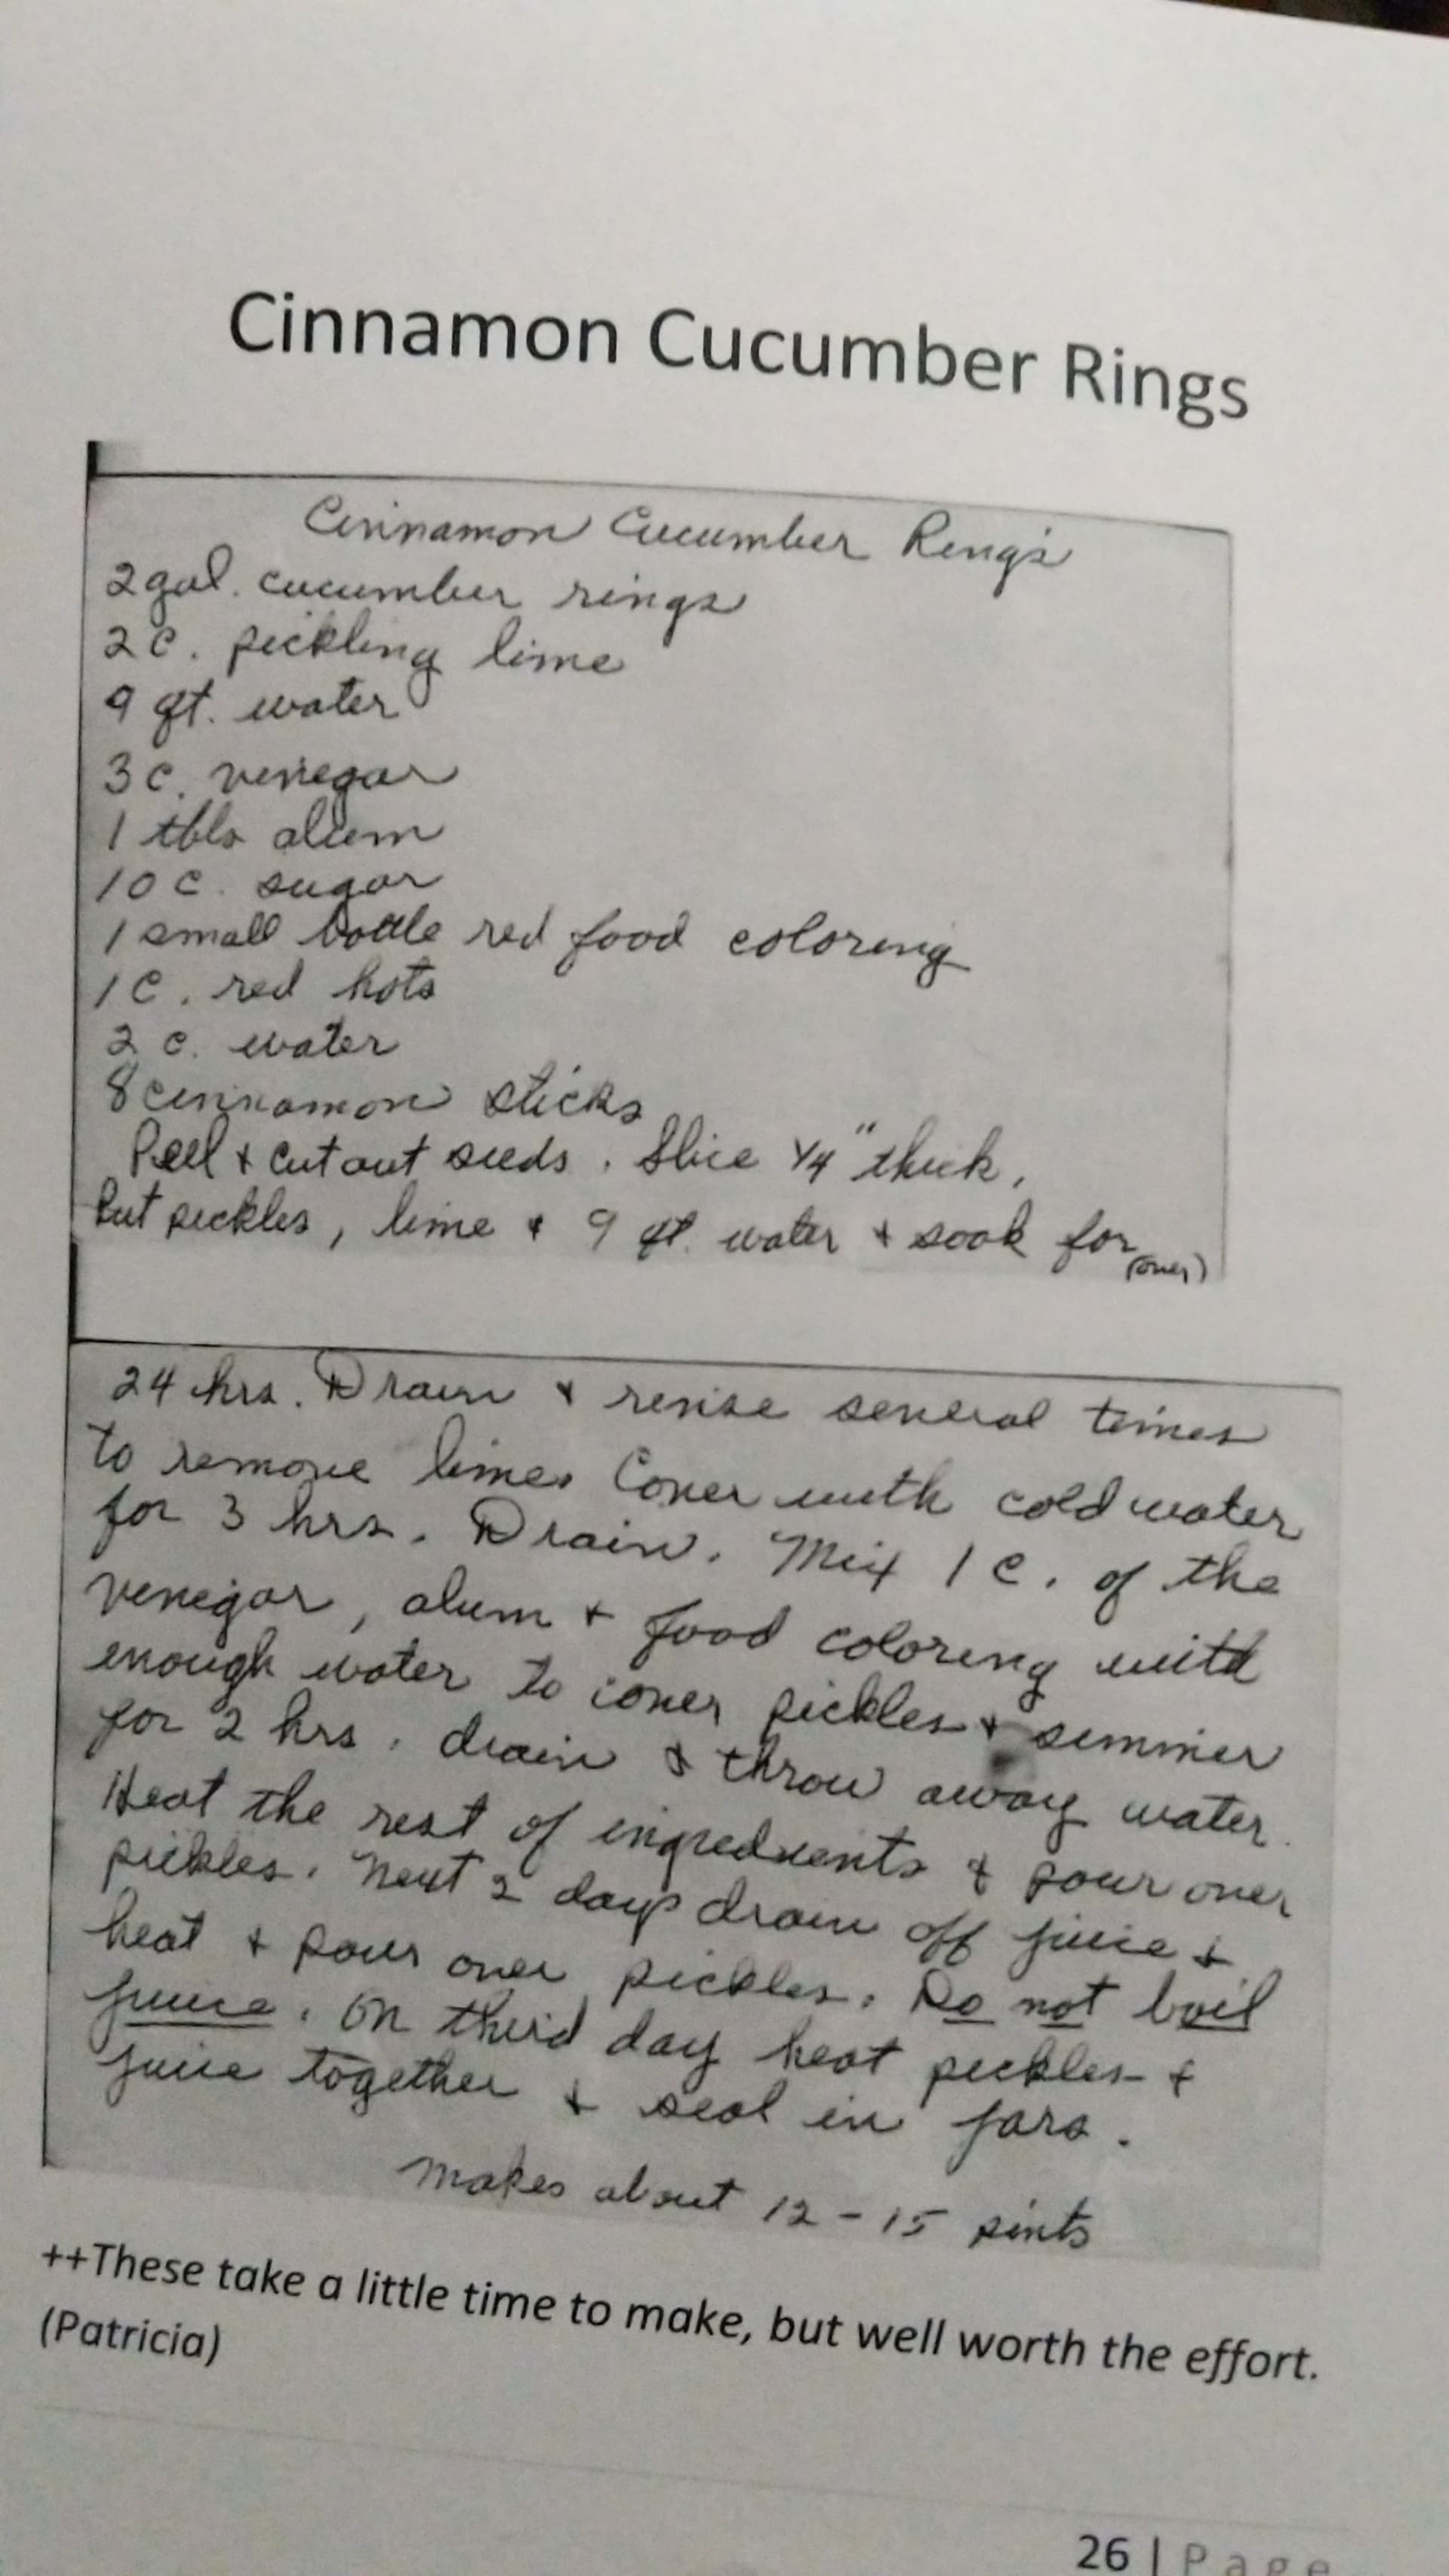 Cinnamon Cucumber Rings
Cinnamon Cucumber Rings
2 gal. cucumber rings
2 C. pickling lime
9 qt. water
3 C. vinegar
1 tbls alum
10 C. sugar
1 small bottle red food coloring
1 C. red hots
2 c. water
8 cinnamon sticks
Peel & cut out seeds. Slice 1/4" thick.
Put pickles, lime & 9 qt. water & soak for
(over)
24 hrs. Drain & rinse several times
to remove lime. Cover with cold water
for 3 hrs. Drain. Mix 1 C. of the
vinegar, alum & food coloring with
enough water to cover pickles & simmer
for 2 hrs. drain & throw away water.
Heat the rest of ingredients & pour over
pickles. Next 2 days drain off juice &
heat & pour over pickles. Do not boil
juice. On third day heat pickles &
juice together & seal in jars.
makes about 12 - 15 pints
++These take a little time to make, but well worth the effort.
(Patricia)
26 | Page